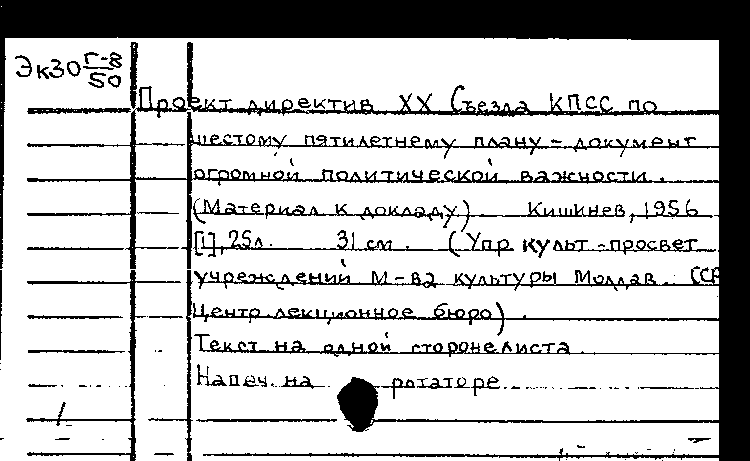 Эк30 Г-8/50
Проект директив XX Съезда КПСС по
шестому пятилетнему плану - документ
огромной политической важности.
(Материал к докладу). Кишинев, 1956
[1], 25л. 31 см. (Упр культ-просвет
учреждений М-ва культуры Молдав. ССР
Центр. лекционное бюро).
Текст на одной стороне листа.
Напеч. на ротаторе